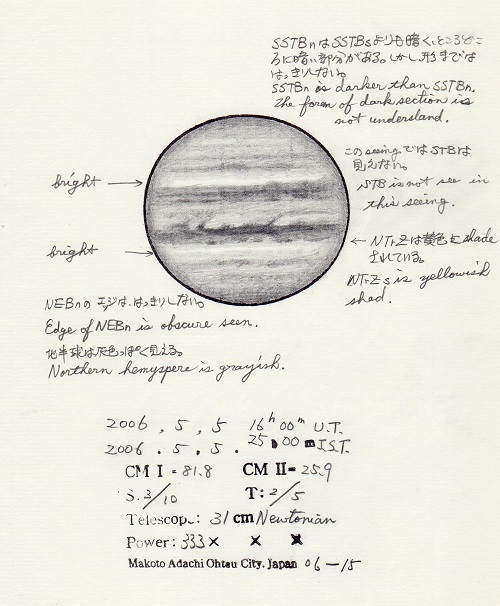 SSTBnはSSTBsよりも暗く、ところどこ
ろに暗い部分がある。しかし、形までは
はっきりしない。
SSTBn is darker than SSTBn.
The form of dark section is
not understand.
このseeing.ではSTBは
見えない。
STB is not see in
this seeing.
bright
bright
NTrZは黄色にshade
されている。
NTrZs is yellowish
shad.
NEBnのエッジは、はっきりしない。
Edge of NEBn is obscure seen.
北半球は灰色っぽく見える。
Northern hemyspere is grayish.
2006 , 5 , 5 16h 00m U.T.
2006 . 5 . 5 . 25 . 00 m J.S.T.
CM I = 81.8 CM II = 25.9
S. 3/10 T: 2/5
Telescop.: 31 cm Newtonian
Power: 333 × × ×
Makoto Adachi Ohtsu City, Japan 06-15